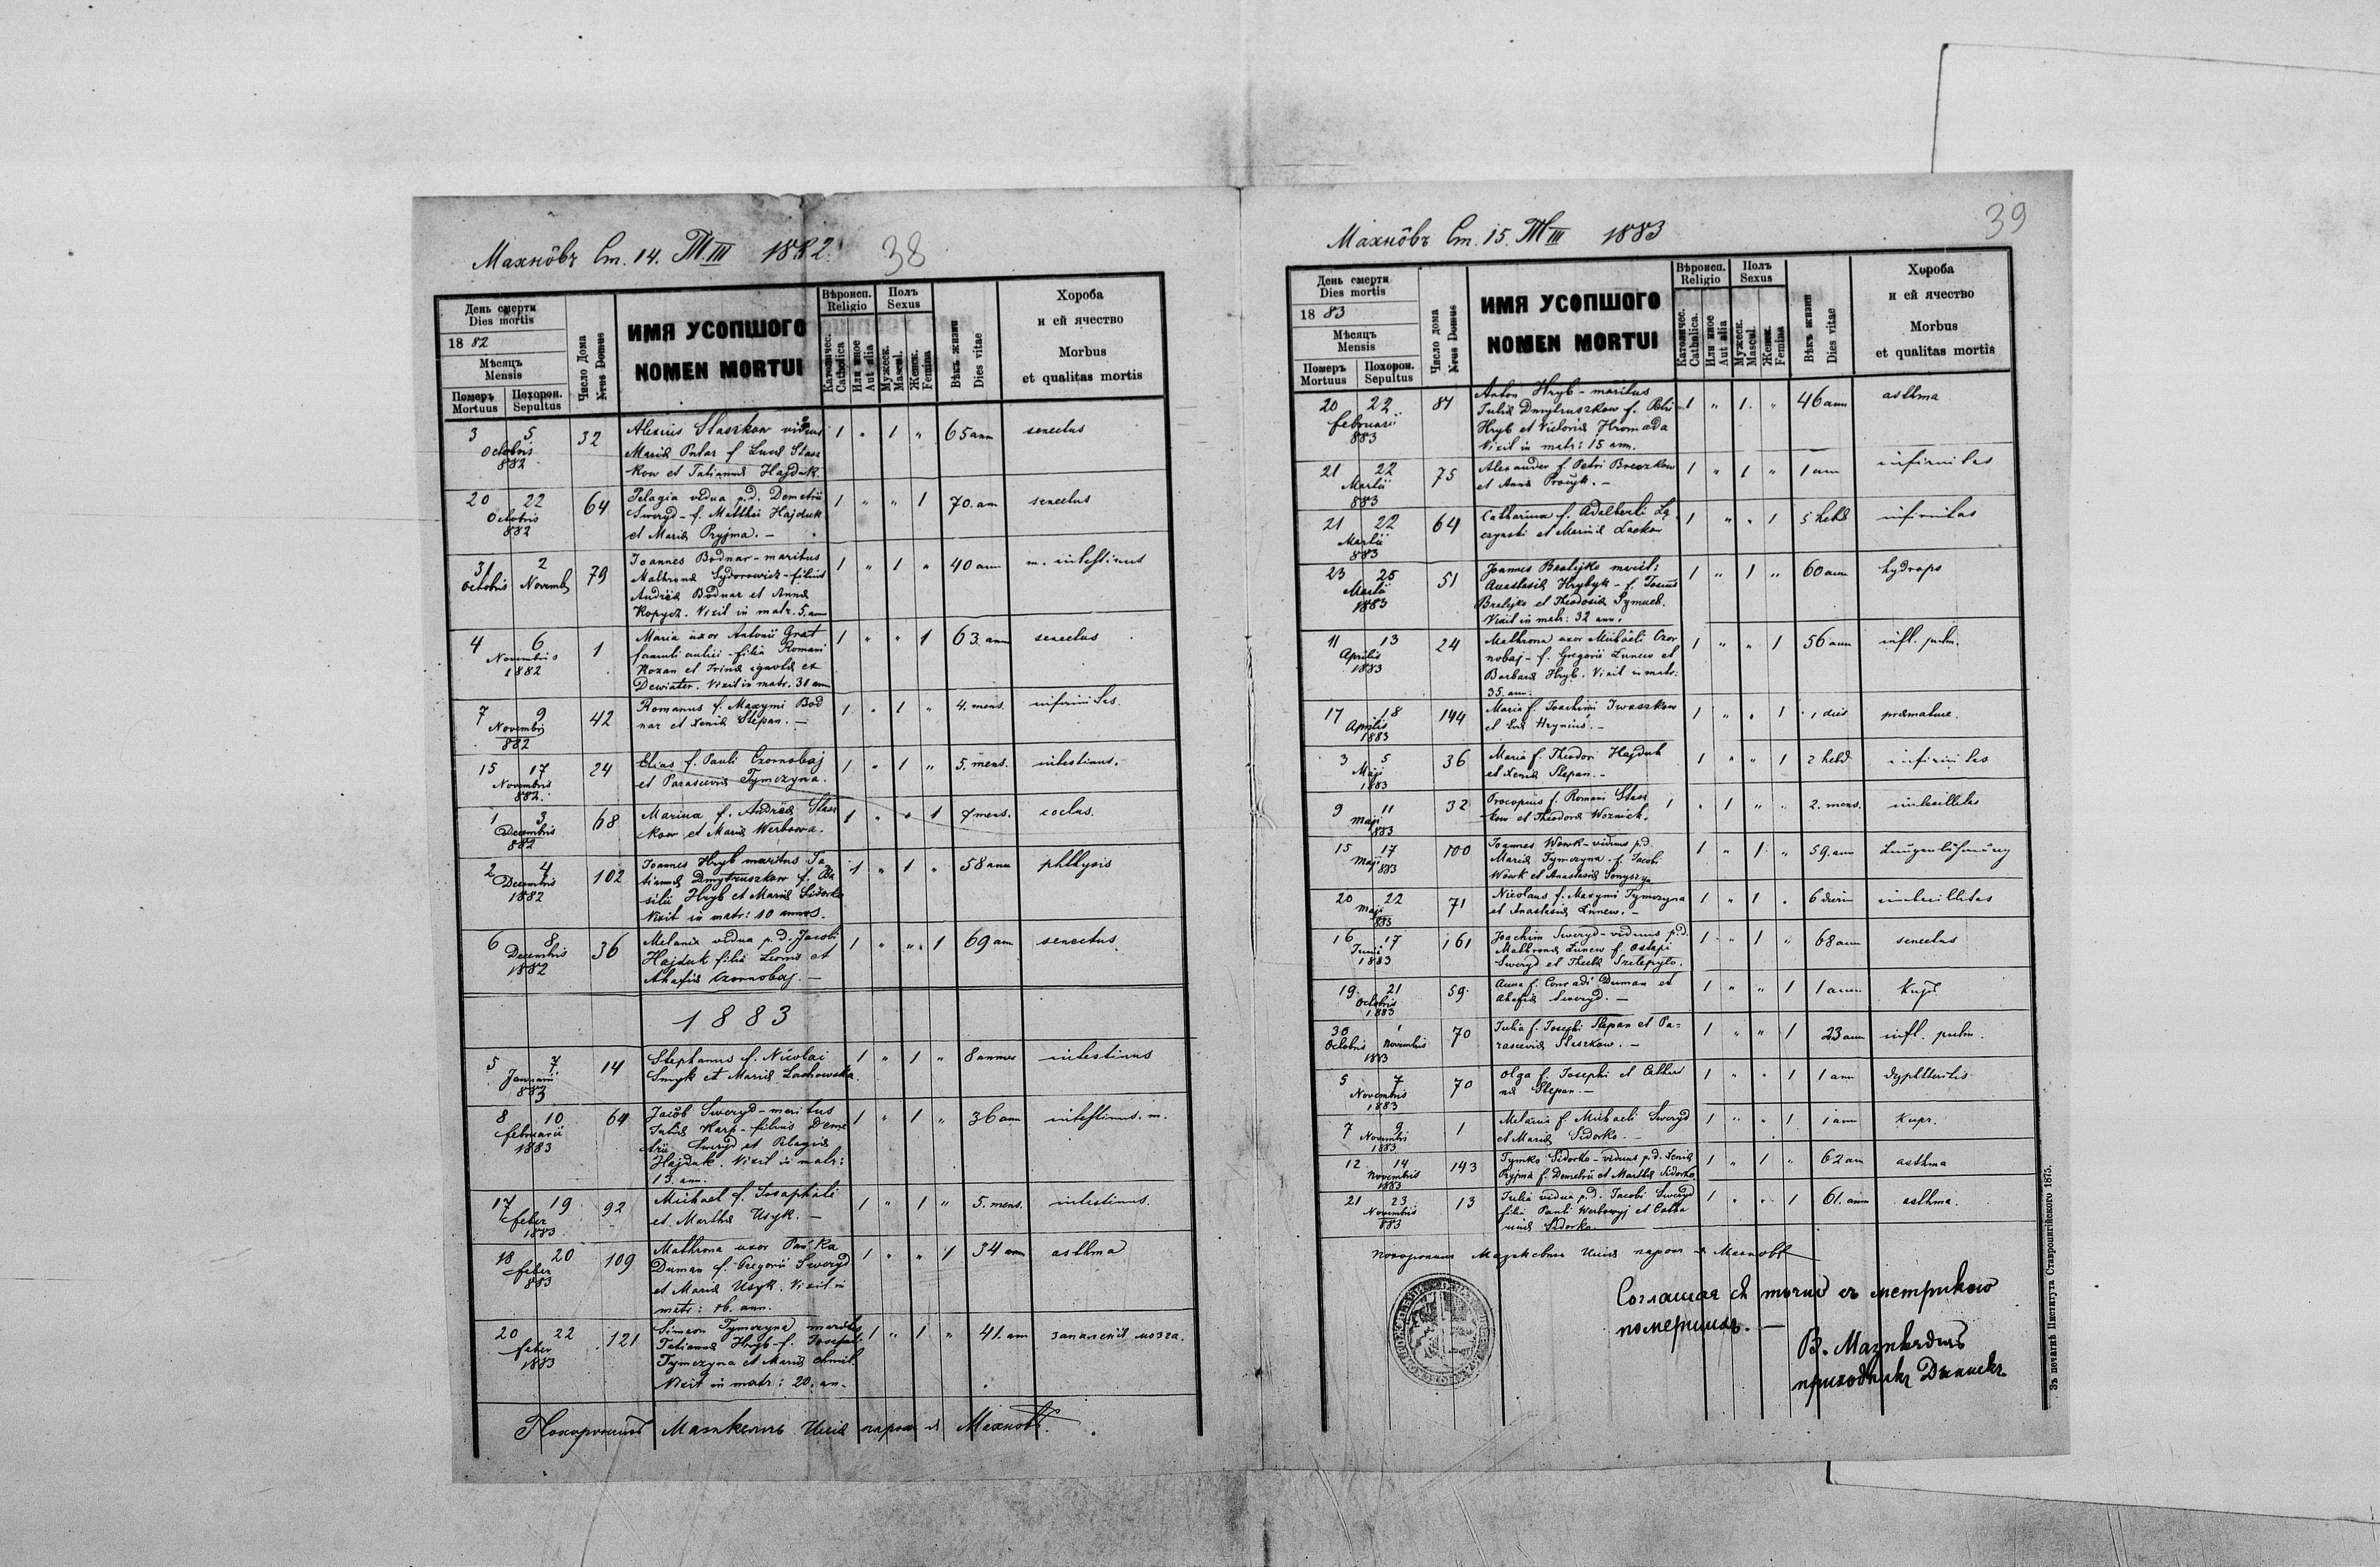 Махнôвъ Ст. 14. Т.III 1882. 38
День смерти
Dies mortis
1882
Мѣсяцъ
Mensis
Померъ
Mortuus
Похорон.
Sepultus
Число Дома
Nrus Domus
ИМЯ УСОПШОГО
NOMEN MORTUI
Вѣроисп.
Religio
Католичес.
Catholica
Или иное
Aut alia
Полъ
Sexus
Мужеск.
Mascul.
Женск.
Femina
Вѣкъ жизни
Dies vitae
Хороба
и ей ячество
Morbus
et qualitas mortis
3 5 Octobris 882 32 Alexius Staszkow viduus 1 " 1 " 65 ann senectus
Maria f Luca Stasz
kow et Tatianna Hajduk.
20 22 Octobris 882 64 Pelagia vidua p.d. Demetrii 1 " " 1 70. an senectus
Sweryd - f. Matthei Hajduk
et Maria Pryjma. -
31 Octobris 2 Novemb 79 Joannes Bodnar - maritus 1 " 1 " 40 ann m. intestinus
Mathrona Sydorowicz - filius
Andrea Bodnar et Anna
Kopycz. Vixit in matr. 5. an
4 6 Novembris 1882 1 Maria uxor Antonii Grat 1 " " 1 63. ann senectus
famuli aulici - filia Romani
Kozan et Irina ignota ex
Dewiater. Vixit in matr. 31 ann
7 9 Novembris 882 42 Romanus f. Maxymi Bod 1 " 1 " 4. mens. infirmitas.
nar et Xenia Stepan. -
15 17 Novembris 882. 24 Elias f. Pauli Czornobaj 1 " 1 " 5. mens. intestinus.
et Parascevia Tymczyna.
1 3 Decembris 882 68 Marina f. Andrea Stasz 1 " " 1 7 mens. coctus.
kow et Maria Werbowa.
2 4 Decembris 1882 102 Joannes Hryb maritus Ta 1 " 1 " 58 ann phthysis
tianna Dmytruszkow f. Ba
silii Hryb et Maria Sidorko
Vixit in matr: 10 annos.
6 8 Decembris 1882 36 Melania vidua p. d. Jacobi 1 " " 1 69 an senectus.
Hajduk filia Leonis et
Ahafia Czornobaj. -
1883
5 7 Januarii 883 14 Stephanus f. Nicolai 1 " 1 " 8 annos intestinus
Smyk et Maria Lachowska.
8 10 februarii 1883 64 Jacob Sweryd - maritus 1 " 1 " 36 an intestinus. m.
Julia Karp - filius Deme
trii Sweryd et Pelagia
Hajduk. Vixit in matr:
13. ann.
17 19 feber 1883 92 Michael f. Josaphati 1 " 1 " 5. mens. intestinus.
et Martha Usyk. -
18 20 feber 883 109 Mathrona uxor Pańka 1 " " 1 34 ann asthma
Duman f. Gregorii Sweryd
et Maria Usyk. Vixit in
matr: 16. ann.
20 22 feber 1883 121 Simeon Tymczyna maritus 1 " 1 " 41. an запаленіе мозга.
Tatianna Hryb - f. Josephat
Tymczyna et Maria Chmil.
Vixit in matr: 20. an.
Похоронивъ Мазякевичъ парох въ Махновѣ.
Махнôвъ Ст. 15. Т III 1883 39
День смерти
Dies mortis
1883
Мѣсяцъ
Mensis
Померъ
Mortuus
Похорон.
Sepultus
Число дома
Nrus Domus
ИМЯ УСОПШОГО
NOMEN MORTUI
Вѣроисп.
Religio
Католичес.
Catholica.
Или иное
Aut alia
Полъ
Sexus
Мужеск.
Mascul.
Женск.
Femina
Вѣкъ жизни
Dies vitae
Хороба
и ей ячество
Morbus
et qualitas mortis
20 22 februarii 883 87 Anton Hryb - maritus 1 " 1. " 46 ann asthma
Julia Dmytruszkow f. Petri
Hryb et Victoria Hromada
Vixit in matr: 15 ann.
21 22 Martii 883 75 Alexander f. Petri Breczkow 1 " 1 " 1 ann infirmitas
et Anna Procyk. -
21 22 Martii 883 64 Catharina f. Adalberti Lą 1 " " 1 5 hebd infirmitas
czynski et Marina Lackow
23 25 Martii 1883 51 Joannes Bratejko marit: 1 " 1 " 60 ann hydrops
Anastasia Hrybyk - f. Josephi
Bratejko et Theodosia Symuch.
Vixit in matr: 32 ann.
11 13 Aprilis 1883 24 Mathrona uxor Michaeli Czor 1 " " 1 56 ann infl. pulm.
nobaj - f. Gregorii Lunew et
Barbara Hryb. Vixit in matr:
35. ann.
17 18 Aprilis 1883 144 Maria f. Joachimi Iwaszkow 1 " " 1 1 dies praemature.
et Eva Hrynius. -
3 5 Maji 1883 36 Maria f. Theodori Hajduk 1 " " 1 2 hebd infirmitas
et Xenia Stepan. -
9 11 Maji 883 32 Procopius f. Romani Stasz 1 " 1 " 2. mens. imbecillitas
kow et Theodora Woznick.
15 17 Maji 883 100 Joannes Wowk - viduus p.d. 1 " 1 " 59. ann Lungenlähmung
Maria Tymczyna - f. Jacobi
Wowk et Anastasia Senyszyn
20 22 Maji 883 71 Nicolaus f. Maxymi Tymczyna 1 " 1 " 6 dierum imbecillitas
et Anastasia Lunew. -
16 17 Junii 1883 161 Joachim Sweryd - viduus p.d. 1 " 1 " 68 ann senectus
Mathrona Lunew f. Ostapi
Sweryd et Thecla Szelepyło.
19. 21 Octobris 1883 59. Anna f. Conradi Duman et 1 " " 1 1 ann
Ahafia Sweryd. -
30 Octobris 1 Novembris 1883 70 Julia f. Josephi Stepan et Pa= 1 " " 1 23 ann infl. pulm.
rascevia Staszkow. -
5 7 Novembris 1883 70 Olga f. Josephi et Cathari 1 " " 1 1 ann dyphtheritis
na Stepan. -
7 9 Novembri 1883 1 Melania f. Michaeli Sweryd 1 " " 1 1 ann
et Maria Sidorko. -
12 14 Novembris 1883 143 Tymko Sidorko - viduus p.d. Xenia 1 " 1 " 62 an asthma
Pryjma f. Demetrii et Martha Sidorko.
21 23 Novembris 883 13 Julia vidua p.d. Jacobi Sweryd 1 " " 1 61. ann asthma.
filia Pauli Werbowyj et Catha
rina Sidorko.
парох въ Махновѣ
Согласная съ метрикою
помершихъ. -
В. Мазякевичъ
приходникъ
Зъ печатнѣ Института Ставропигійского 1875.